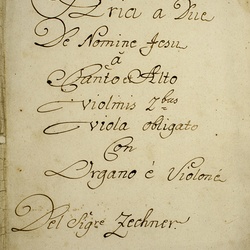 Aria a Due
De Nomine Jesu
a
Canto e Alto
Violinis 2bus
Viola obligato
Con
Organo è Violone
Del Sigre Zechner.